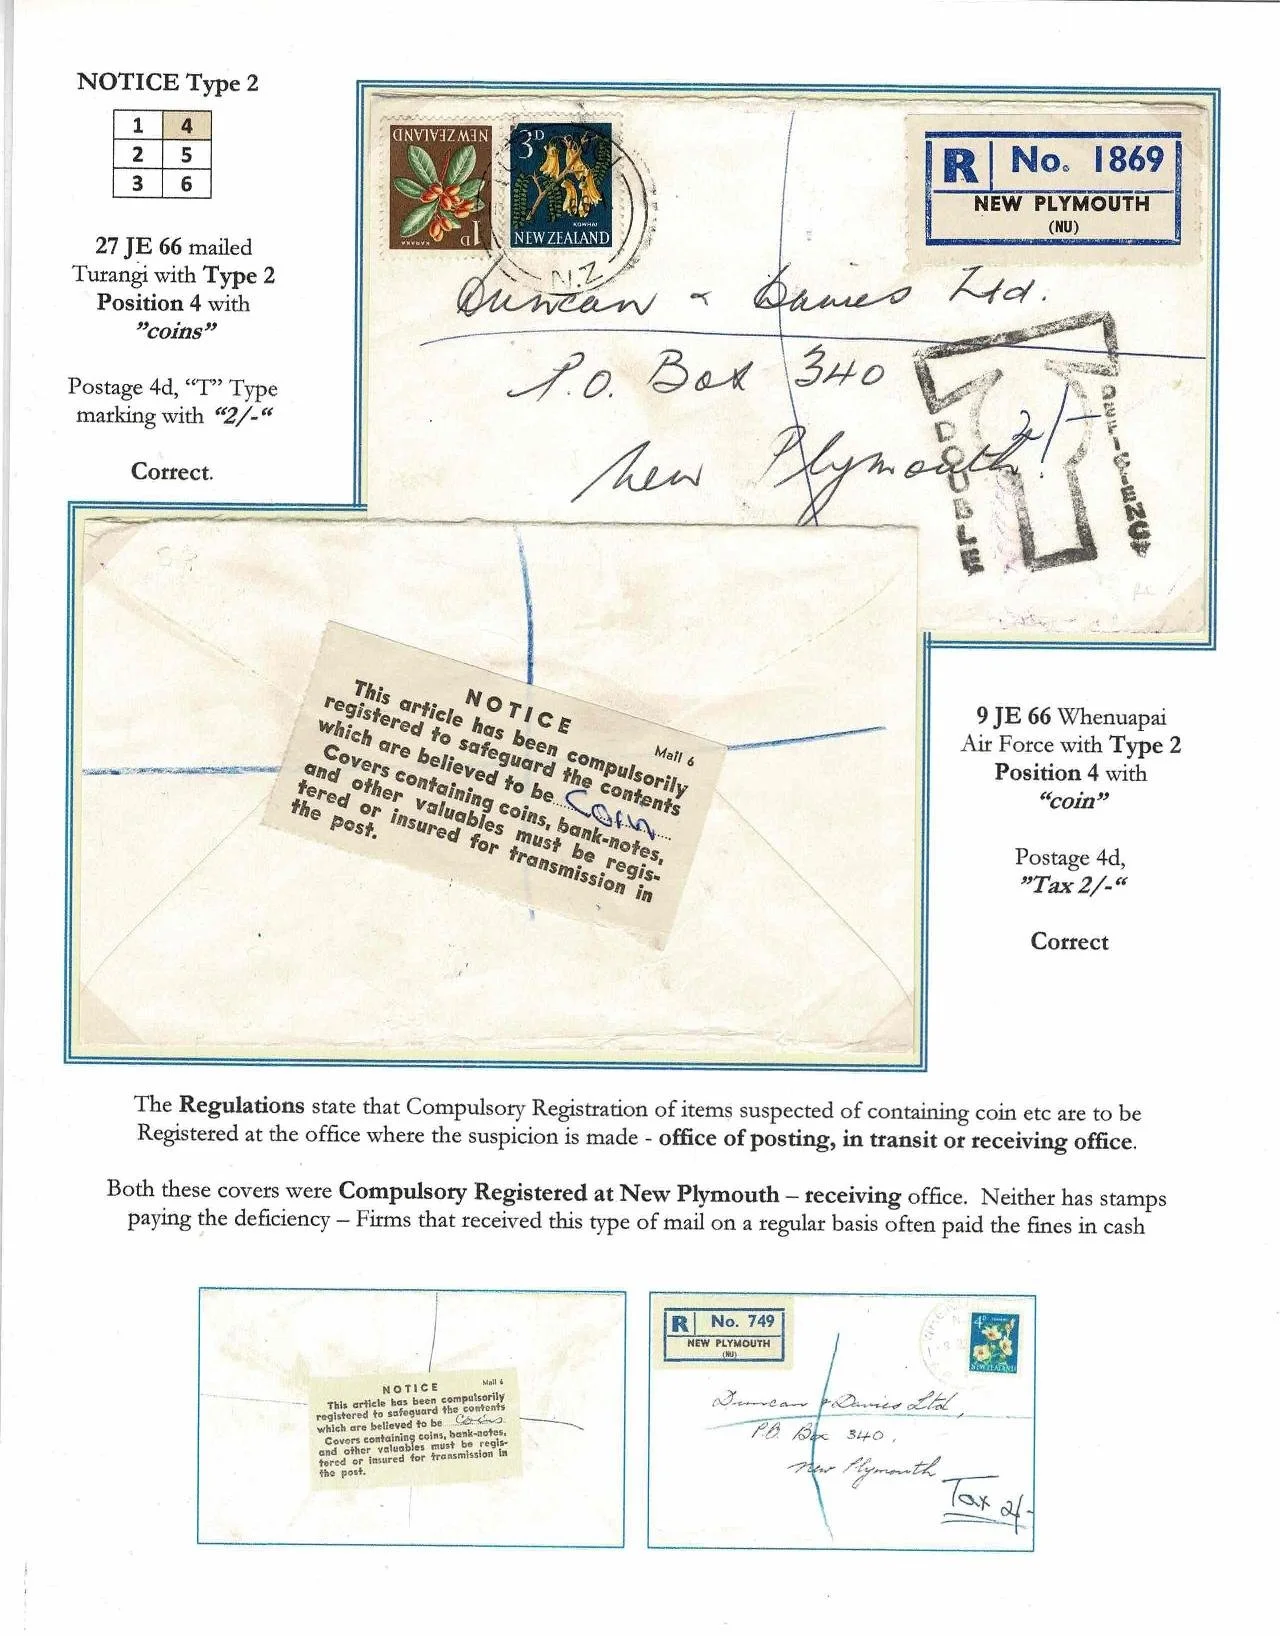 NOTICE Type 2
1 4
2 5
3 6
27 JE 66 mailed
Turangi with Type 2
Position 4 with
"coins"
Postage 4d, "T" Type
marking with "2/-"
Correct.
NEW ZEALAND
KARAKA
1D
3D
KOWHAI
NEW ZEALAND
N.Z
R No. 1869
NEW PLYMOUTH
(NU)
Duncan & Davies Ltd.
P.O. Box 340
New Plymouth
2/-
DOUBLE
DEFICIENCY
NOTICE
Mail 6
This article has been compulsorily
registered to safeguard the contents
which are believed to be.....Coin....
Covers containing coins, bank-notes,
and other valuables must be regis-
tered or insured for transmission in
the post.
9 JE 66 Whenuapai
Air Force with Type 2
Position 4 with
"coin"
Postage 4d,
"Tax 2/-"
Correct
The Regulations state that Compulsory Registration of items suspected of containing coin etc are to be
Registered at the office where the suspicion is made - office of posting, in transit or receiving office.
Both these covers were Compulsory Registered at New Plymouth – receiving office. Neither has stamps
paying the deficiency – Firms that received this type of mail on a regular basis often paid the fines in cash
NOTICE
Mail 6
This article has been compulsorily
registered to safeguard the contents
which are believed to be Coins
Covers containing coins, bank-notes,
and other valuables must be regis-
tered or insured for transmission in
the post.
R No. 749
NEW PLYMOUTH
(NU)
4D
NEW ZEALAND
Duncan & Davies Ltd,
P.O. Box 340,
New Plymouth
Tax 2/-